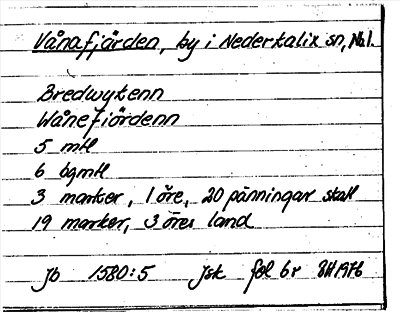 Vånafjärden, by i Nederkalix sn, Nbl.
Bredwykenn
Wånefiördenn
5 mtl
6 bgmtl
3 marker, 1 öre, 20 pänningar skatt
19 marker, 3 öres land
Jb 1580:5 Jsk fol 6r 1976